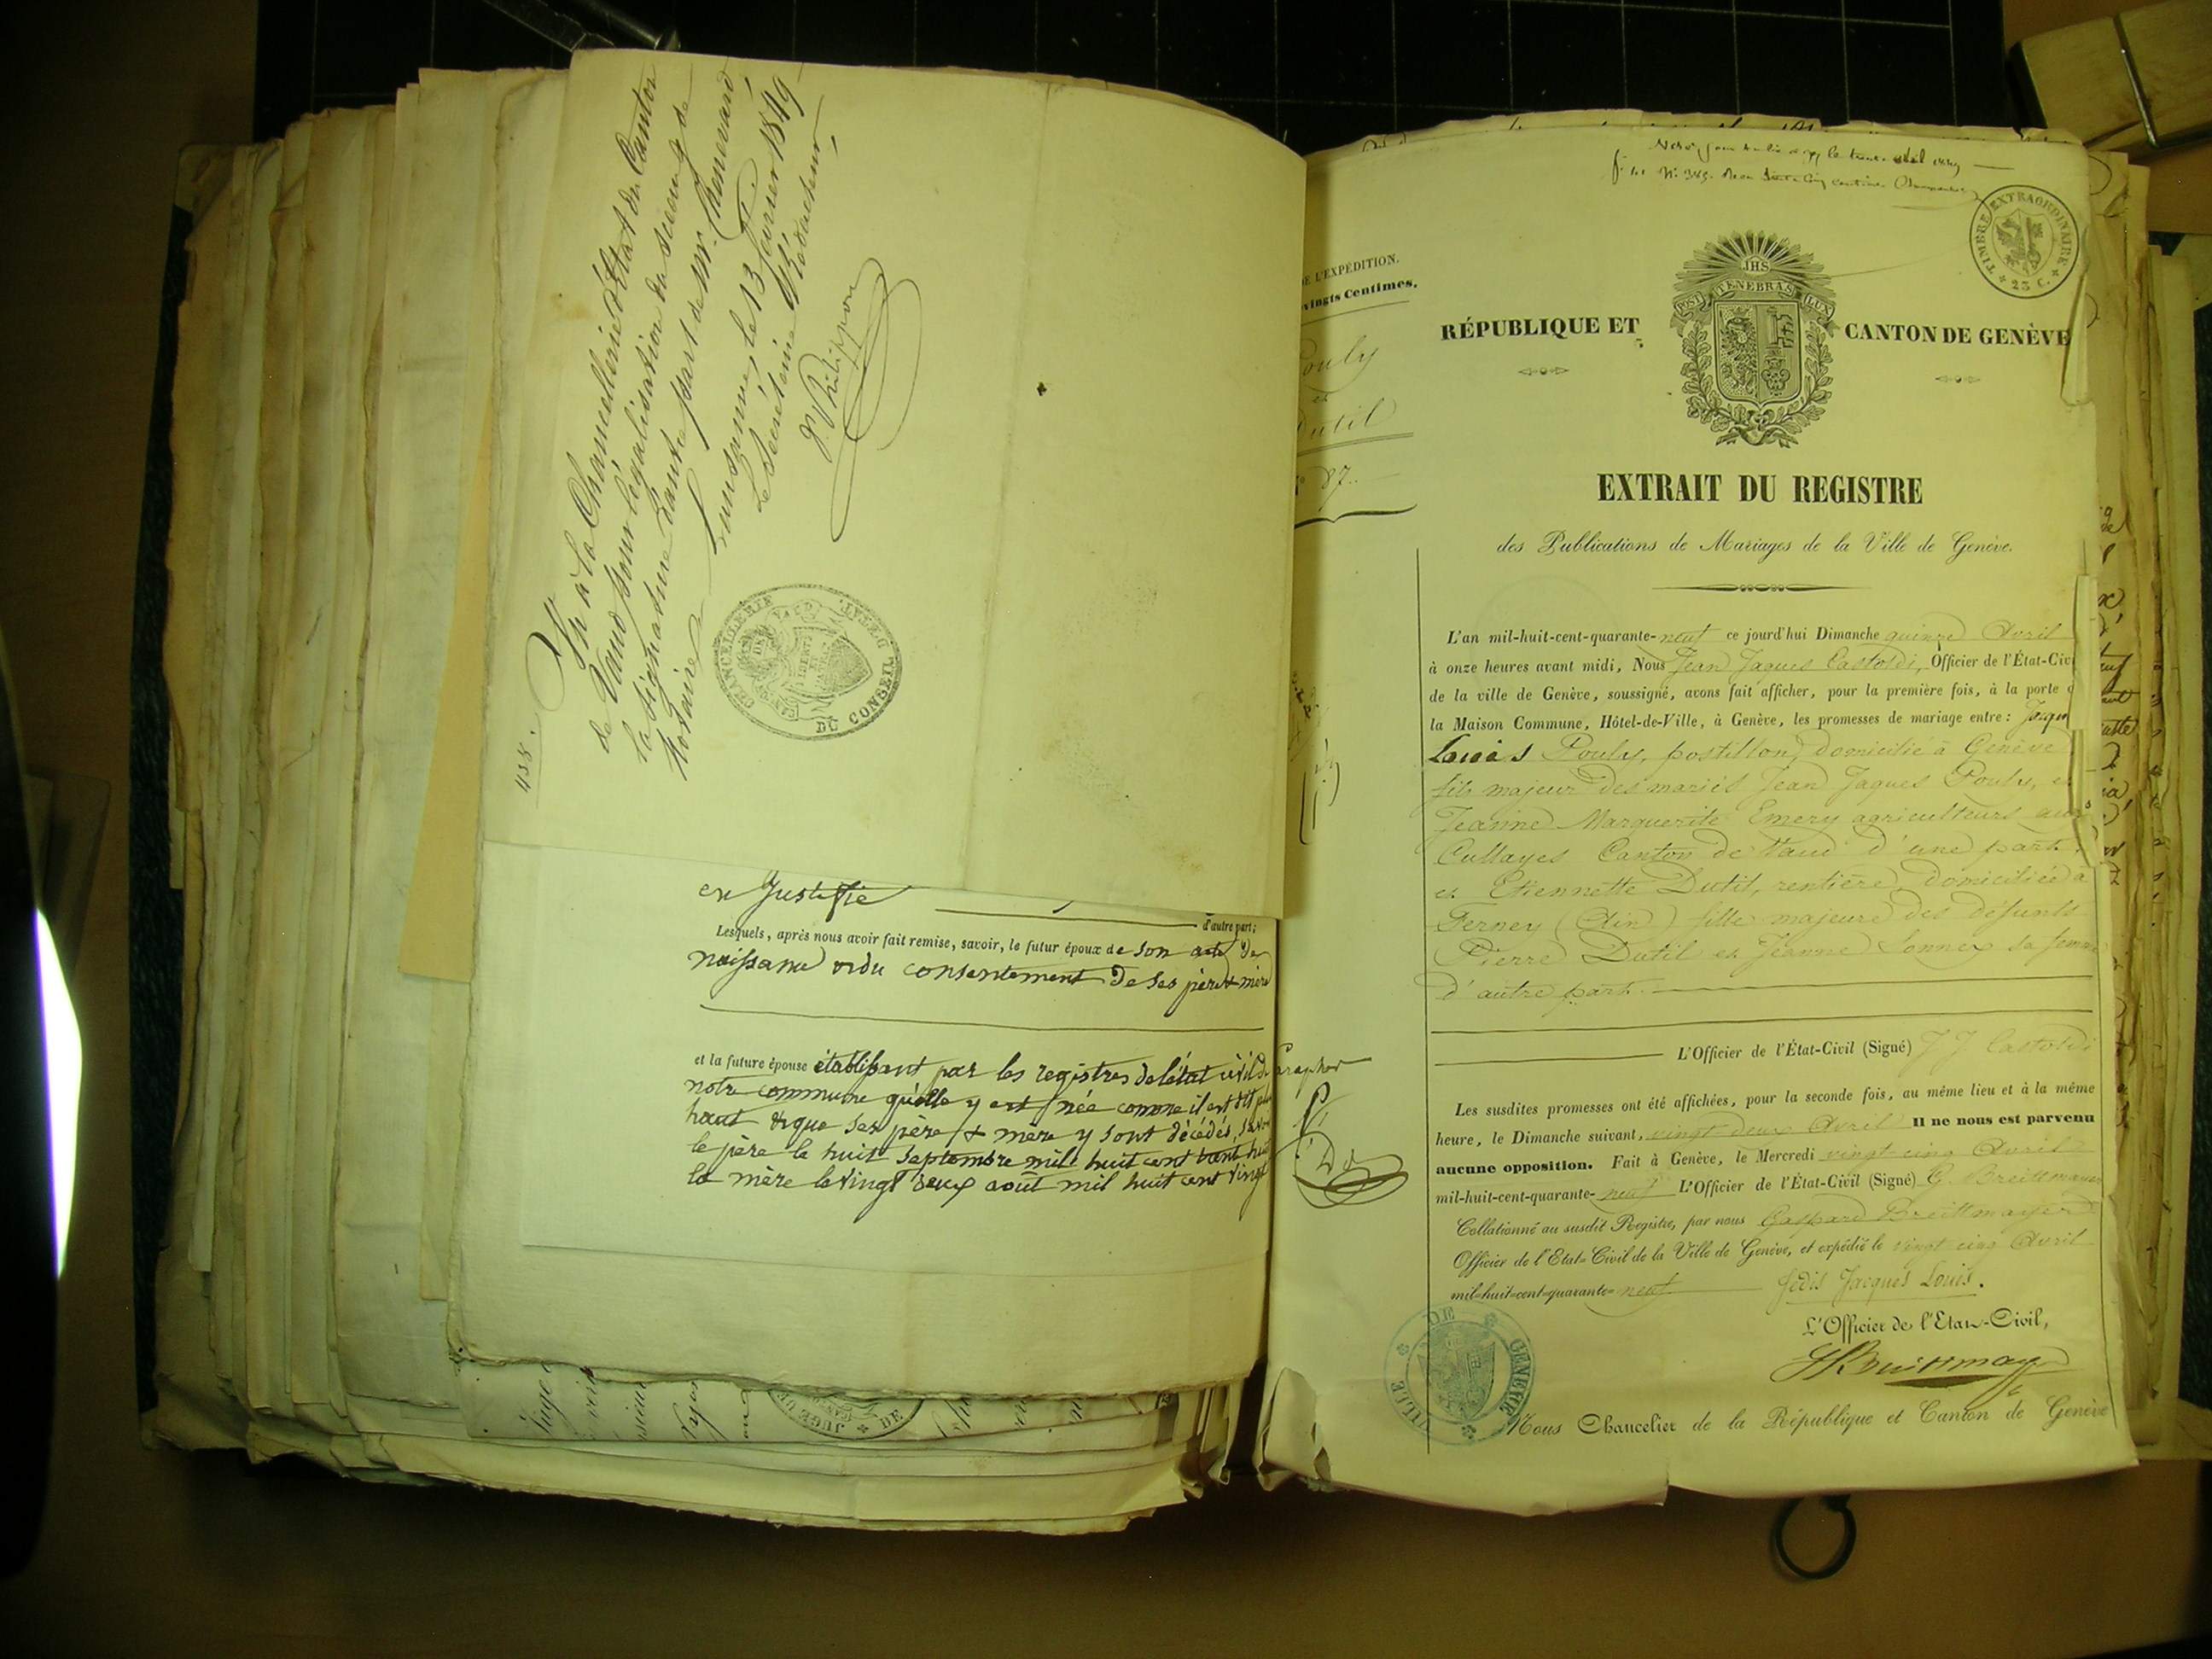 438.
Vu à la Chancellerie d'Etat du Canton
de Vaud pour légalisation du sceau & de
la signature d'autre part de Mr. Chenevard
Notaire
Lausanne, le 13 février 1849
Le Secrétaire Rédacteur,
P. Philippon
CHANCELLERIE
DU CONSEIL
en Justifie
d'autre part;
Lesquels, après nous avoir fait remise, savoir, le futur époux de son acte de
naissance & du consentement de ses père & mère
et la future épouse établissant par les registres de l'état civil de
notre commune qu'elle y est née comme il est dit plus
haut & que ses père & mère y sont décédés, savoir
le père le huit septembre mil huit cent trente huit
la mère le vingt deux août mil huit cent vingt
JUGE DE
DE L'EXPÉDITION.
vingts Centimes.
Pouly
et
Dutil
N° 87.
TIMBRE EXTRAORDINAIRE
25 C.
JHS
POST TENEBRAS LUX
RÉPUBLIQUE ET CANTON DE GENÈVE
EXTRAIT DU REGISTRE
des Publications de Mariages de la Ville de Genève.
L'an mil-huit-cent-quarante-neuf ce jourd'hui Dimanche quinze Avril
à onze heures avant midi, Nous Jean Jaques Castoldi, Officier de l'État-Civ
de la ville de Genève, soussigné, avons fait afficher, pour la première fois, à la porte d
la Maison Commune, Hôtel-de-Ville, à Genève, les promesses de mariage entre: Jaqu
Louis Pouly, postillon, domicilié à Genève
fils majeur des mariés Jean Jaques Pouly, et
Jeanne Marguerite Emery agriculteurs aux
Cullayes Canton de Vaud d'une part.
et Etiennette Dutil, rentière, domiciliée à
Ferney (Ain) fille majeure des défunts
Pierre Dutil et Jeanne Sonnex sa femme
d'autre part.
L'Officier de l'État-Civil (Signé) J J Castoldi
Les susdites promesses ont été affichées, pour la seconde fois, au même lieu et à la même
heure, le Dimanche suivant, vingt deux Avril Il ne nous est parvenu
aucune opposition. Fait à Genève, le Mercredi vingt cinq Avril
mil-huit-cent-quarante-neuf L'Officier de l'État-Civil (Signé) G. Breittmayer
Collationné au susdit Registre, par nous Gaspard Breittmayer
Officier de l'Etat-Civil de la Ville de Genève, et expédié le vingt cinq Avril
mil-huit-cent-quarante-neuf
Jedis Jacques Louis.
L'Officier de l'Etat-Civil,
G Breittmayer
VILLE DE GENEVE
Nous Chancelier de la République et Canton de Genève